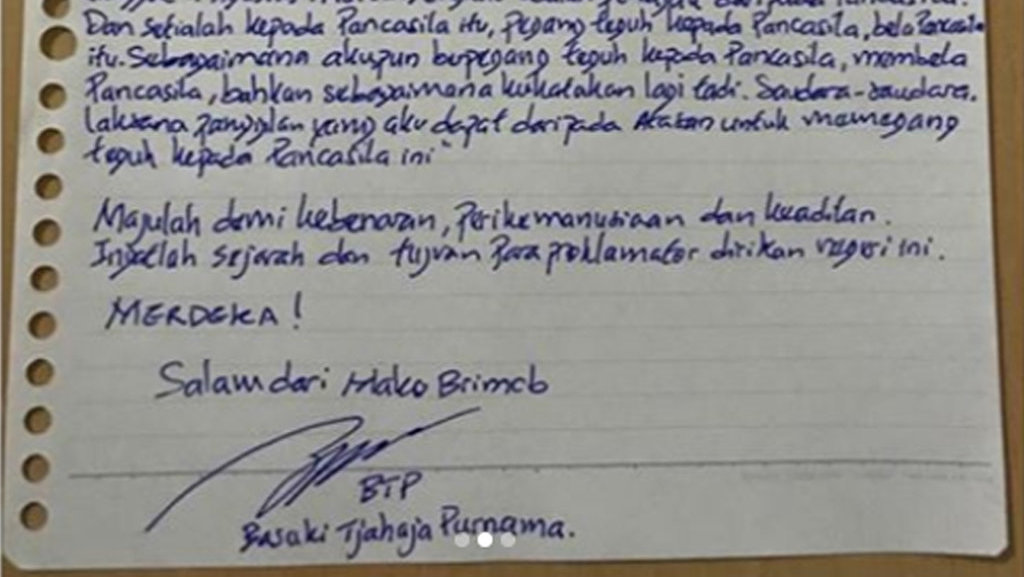 Dan setialah kepada Pancasila itu, pegang teguh kepada Pancasila, bela Pancasila
itu. Sebagaimana akupun berpegang teguh kepada Pancasila, membela
Pancasila, bahkan sebagaimana kukatakan lagi tadi. Saudara-saudara.
laksana panggilan yang aku dapat daripada Atasan untuk memegang
teguh kepada Pancasila ini"
Majulah demi kebenaran, perikemanusiaan dan keadilan.
Ingatlah sejarah dan tujuan para proklamator dirikan negeri ini.
MERDEKA!
Salam dari Mako Brimob
BTP
Basuki Tjahaja Purnama.